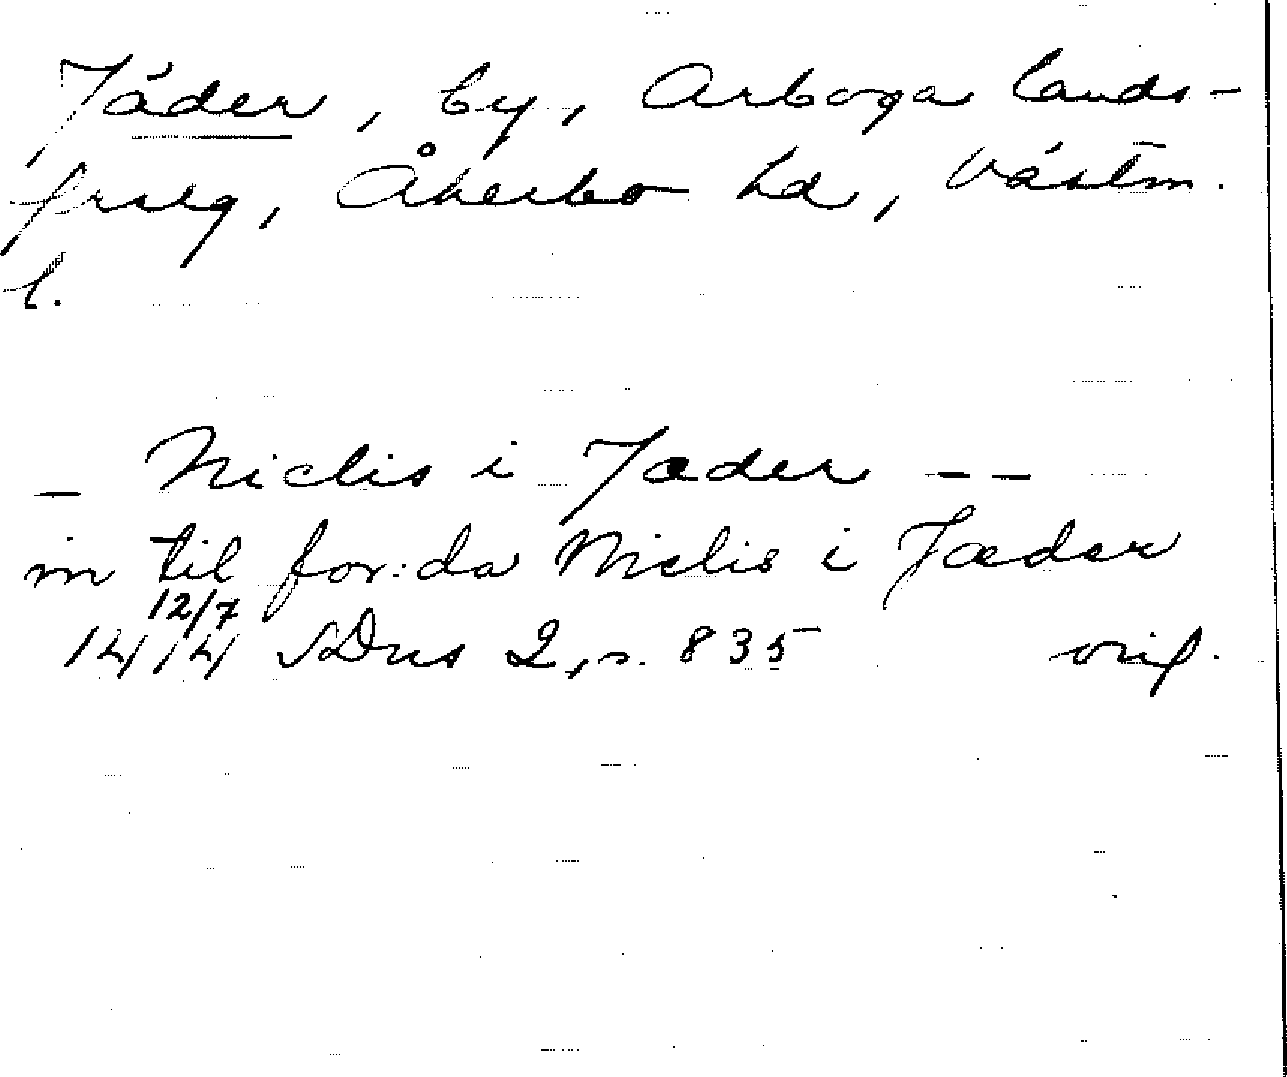 Jäder, by, Arboga lands-
frsg, Åkerbo hd, Västm.
l.
_ Niclis i Jæder _ _
in til for:da Niclis i Jæder
12/7
1414 SDns 2, s. 835 orig.